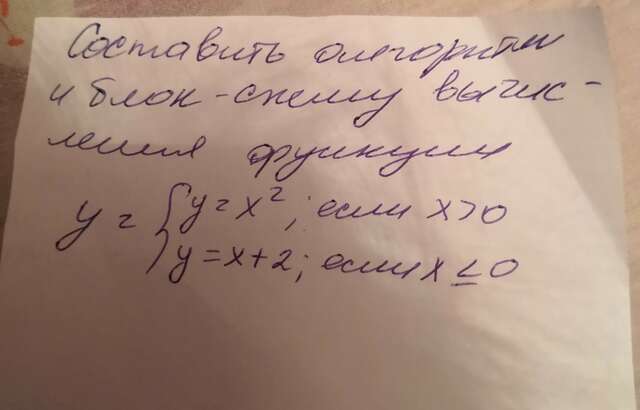 Составить алгоритм
и блок-схему вычис-
ления функции
y = { y = x²; если x>0
y = x+2; если x ≤ 0